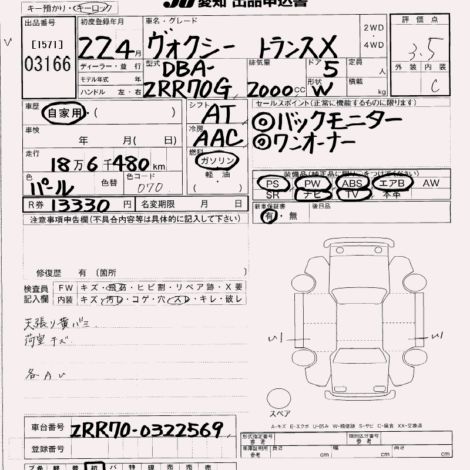 キー預かり・(キーロック)
JU愛知 出品申込書
出品番号
[1571]
03166
初度登録年月
22年4月
車名・グレード
ヴォクシー トランスX
2WD・4WD
評価点
3.5
ディーラー・並行
モデル年式
ハンドル 左・右
型式
DBA-ZRR70G
排気量
2000cc
ドア
5
形状
W
定員
人
積載
kg
外装 内装
C
車歴
自家用・( )
シフト
AT
セールスポイント(正常に機能するものに限ります)
◎バックモニター
◎ワンオーナー
車検
年 月( 日)
冷房
AAC
走行
18万6千480km
燃料
ガソリン
軽油
( )
色
パール
色替
色コード
070
PS PW ABS エアB AW
SR ナビ TV 本革
R券 13330円
名変期限 月 日
新車保証書
有・無
後日品
注意事項申告欄(不具合内容等は具体的に記入して下さい)
修復歴 有(箇所
検査員記入欄
FW キズ・飛石・ヒビ割・リペア跡・X要
内装 キズ・汚れ・コゲ・穴・スレ・キレ・破レ
天張り黄バミ
荷室キズ
各AU
スペア
A-キズ E-エクボ U-凹み W-補修跡 S-サビ C-腐食 XX-交換済
車台番号
ZRR70-0322569
登録番号